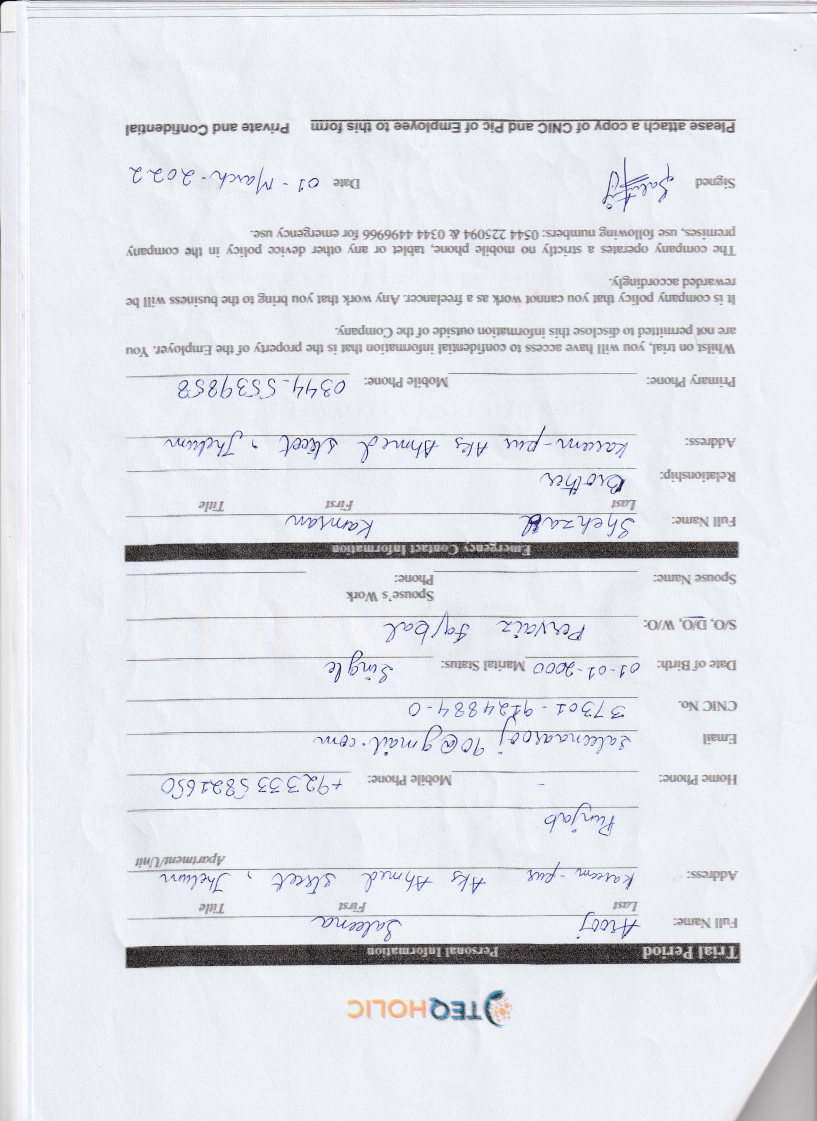 TEQHOLIC
Trial Period Personal Information
Full Name: Arooj Saleena
Last First Title
Address: Kareem-pur Aks Ahmed street, Jhelum
Apartment/Unit
Punjab
Home Phone: - Mobile Phone: +923335821650
Email saleenaarooj90@gmail.com
CNIC No. 37301-9124884-0
Date of Birth: 01-01-2000 Marital Status: Single
S/O, D/O, W/O: Pervaiz Iqbal
Spouse's Work
Spouse Name: Phone:
Emergency Contact Information
Full Name: Shehzad Kamran
Last First Title
Relationship: Brother
Address: Kareem-pur Aks Ahmed street, Jhelum
Primary Phone: Mobile Phone: 0344-5539858
Whilst on trial, you will have access to confidential information that is the property of the Employer. You
are not permitted to disclose this information outside of the Company.
It is company policy that you cannot work as a freelancer. Any work that you bring to the business will be
rewarded accordingly.
The company operates a strictly no mobile phone, tablet or any other device policy in the company
premises, use following numbers: 0544 225094 & 0344 4496966 for emergency use.
Signed Date 01-March-2022
Please attach a copy of CNIC and Pic of Employee to this form Private and Confidential